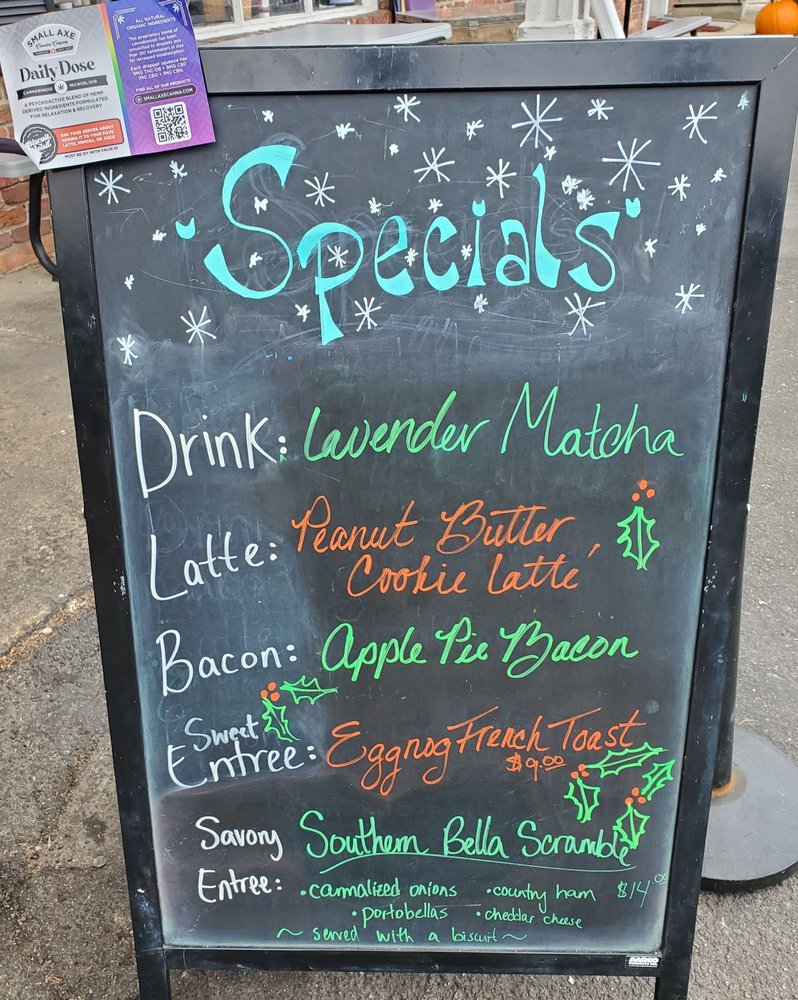 SMALL AXE
Daily Dose
CANNABINOID MICROELIXIR
A PSYCHOACTIVE BLEND OF HEMP
DERIVED INGREDIENTS FORMULATED
FOR RELAXATION & RECOVERY
ASK YOUR SERVER ABOUT
ADDING IT TO YOUR FAVE
LATTE, MIMOSA, OR JUICE
MUST BE 21+ WITH VALID ID
ALL NATURAL
ORGANIC INGREDIENTS
FIND ALL OF OUR PRODUCTS
SMALLAXECANNA.COM
Specials
Drink: Lavender Matcha
Latte: Peanut Butter
Cookie Latte
Bacon: Apple Pie Bacon
Sweet
Entree: Eggnog French Toast
$9.00
Savory
Entree: Southern Bella Scramble
• carmalized onions • country ham $14.00
• portobellas • cheddar cheese
~ served with a biscuit ~
AARCO